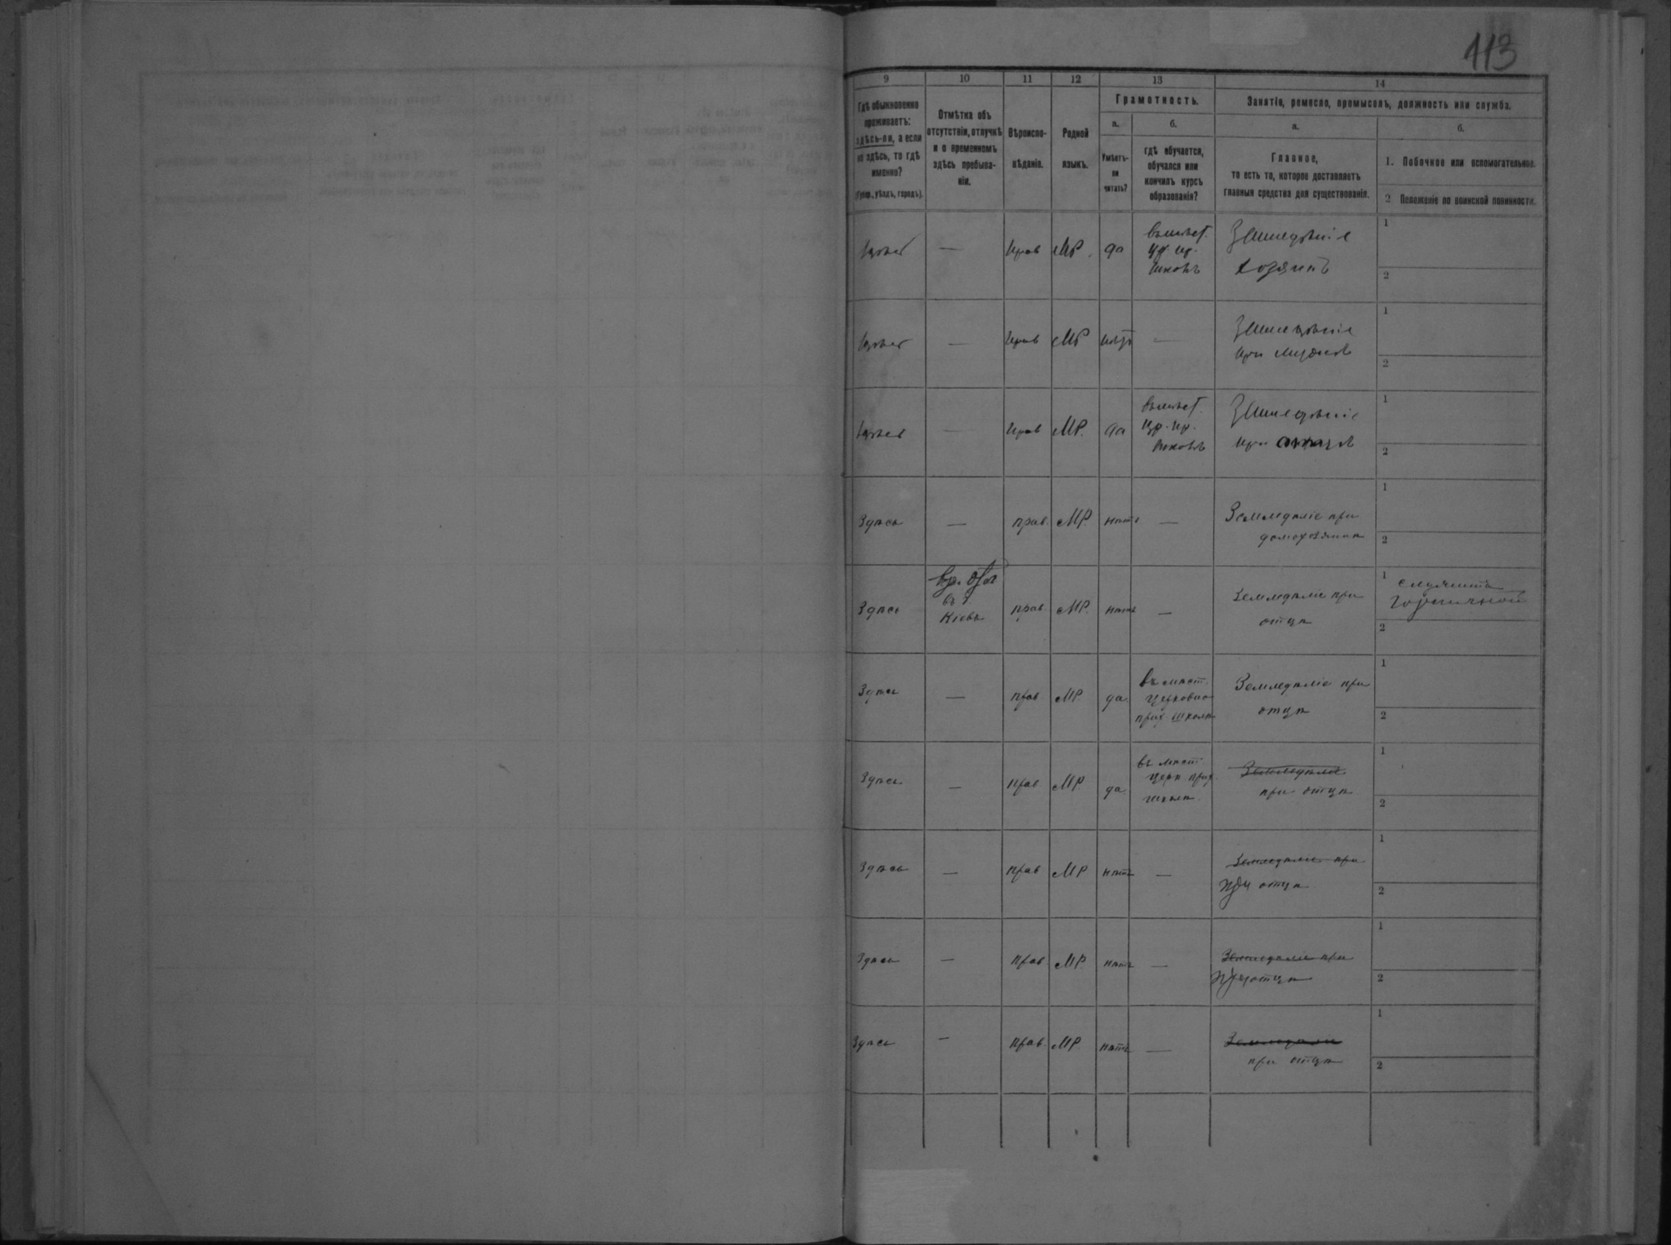 113
9 10 11 12 13 14
Гдѣ обыкновенно
проживаетъ:
здѣсь-ли, а если
не здѣсь, то гдѣ
именно?
(Губер., уѣздъ, городъ).
Отмѣтка объ
отсутствіи, отлучкѣ
и о временномъ
здѣсь пребыва-
ніи.
Вѣроиспо-
вѣданіе.
Родной
языкъ.
Грамотность.
а.
Умѣетъ-
ли
читать?
б.
гдѣ обучается,
обучался или
кончилъ курсъ
образованія?
Занятіе, ремесло, промыселъ, должность или служба.
а.
Главное,
то есть то, которое доставляетъ
главныя средства для существованія.
б.
1. Побочное или вспомогательное.
2 Положеніе по воинской повинности.
— Прав МР. да
Земледѣліе
хозяинъ
1
2
— Прав МР нѣтъ —
Земледѣліе
при
1
2
— Прав МР. да
Земледѣліе
при отцѣ
1
2
Здѣсь — прав. МР нѣтъ —
Земледѣліе при
домохозяинѣ
1
2
Здѣсь
вр. отл
въ г
Кіевѣ
прав МР. нѣтъ —
Земледѣліе при
отцѣ
1 служитъ
горничной
2
Здѣсь — прав МР да
въ мѣст.
церковно
прих школѣ
Земледѣліе при
отцѣ
1
2
Здѣсь — прав МР да
въ мѣст.
церк прих
школѣ
Земледѣліе
при отцѣ
1
2
Здѣсь — прав МР нѣтъ —
Земледѣліе при
при отцѣ
1
2
Здѣсь — прав МР нѣтъ —
Земледѣліе при
при отцѣ
1
2
Здѣсь — прав. МР нѣтъ —
Земледѣліе
при отцѣ
1
2